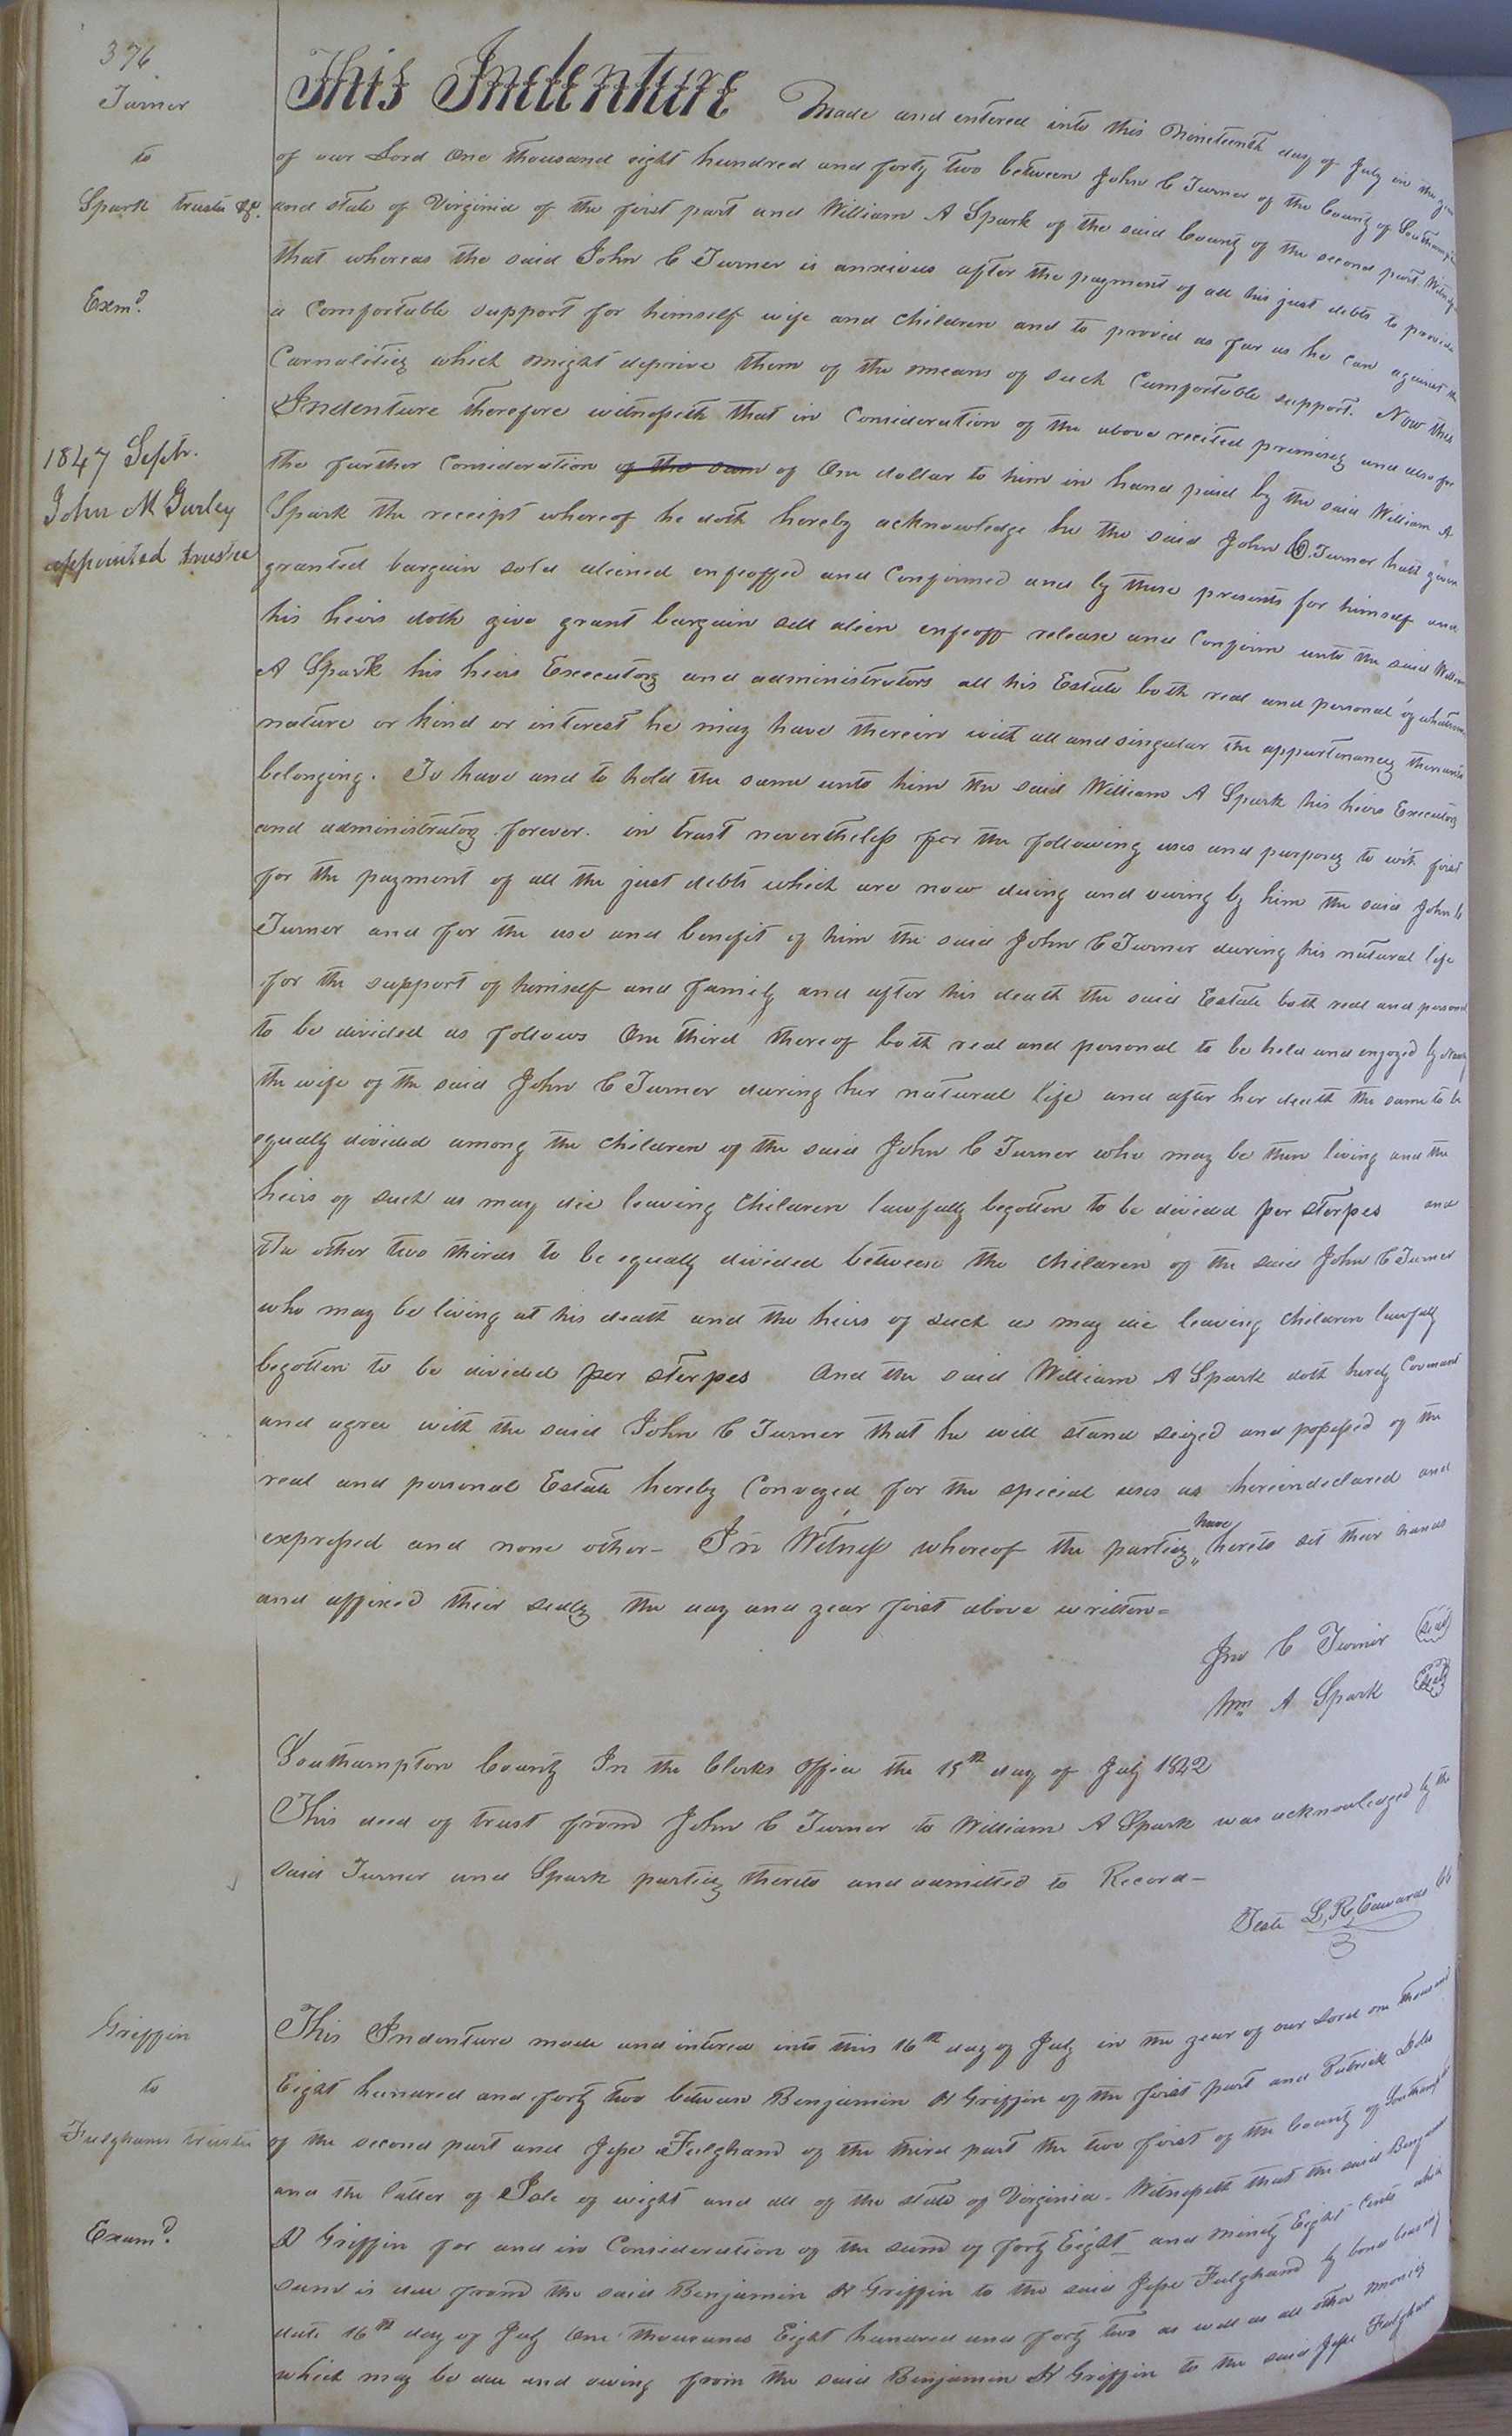 376
Turner
to
Spark trustee &c.
Exmd.
1847 Septr.
John M Gurley
appointed trustee
This Indenture Made and entered into this Nineteenth day of July in the year
of our Lord One thousand eight hundred and forty two between John C Turner of the County of Southampton
and state of Virginia of the first part and William A Spark of the said County of the second part. Witnesseth
that whereas the said John C Turner is anxious after the payment of all his just debts to provide
a Comfortable support for himself wife and children and to provid as far as he can against the
which might deprive them of the means of such Comfortable support. Now this
Indenture therefore witnesseth that in Consideration of the above recited premises and also for
the further Consideration of the sum of One dollar to him in hand paid by the said William A
Spark the receipt whereof he doth hereby acknowledge he the said John C. Turner hath given
granted bargain sold aliened enfeoffed and Confirmed and by these presents for himself and
his heirs doth give grant bargain sell alien enfeoff release and Confirm unto the said William
A Spark his heirs Executors and administrators all his Estate both real and personal of whatsoever
nature or kind or interest he may have therein with all and singular the appurtenances thereunto
belonging. To have and to hold the same unto him the said William A Spark his heirs Executors
and administrators forever. in trust nevertheless for the following uses and purposes to wit first
for the payment of all the just debts which are now dueing and owing by him the said John C
Turner and for the use and benefit of him the said John C Turner during his natural life
for the support of himself and family and after his death the said Estate both real and personal
to be divided as follows One third thereof both real and personal to be held and enjoyed by Nancy
the wife of the said John C Turner during her natural life and after her death the same to be
equally divided among the children of the said John C Turner who may be then living and the
heirs of such as may die leaving Children lawfully begotten to be divided per sterpes and
the other two thirds to be equally divided between the children of the said John C Turner
who may be living at his death and the heirs of such as may die leaving children lawfully
begotten to be divided per sterpes And the said William A Spark doth hereby Covenant
and agree with the said John C Turner that he will stand seized and possessed of the
real and personal Estate hereby Conveyed for the special uses as hereindeclared and
expressed and none other - In Witness whereof the parties have hereto set their hands
and affixed their seals the day and year first above written =
Jno C Turner (Seal)
Wm A Spark (Seal)
Southampton County In the Clerks Office the 19th day of July 1842
This deed of trust from John C Turner to William A Spark was acknowledged by the
said Turner and Spark parties thereto and admitted to Record -
Teste L, R, Edwards Ck
Griffin
to
Fulghams trustee
Examd.
This Indenture made and intered into this 16th day of July in the year of our Lord one thousand
Eight hundred and forty two between Benjamin H Griffin of the first part and Patrick Doles
of the second part and Jesse Fulgham of the third part the two first of the County of Southampton
and the latter of Isle of wight and all of the state of Virginia - Witnesseth that the said Benjamin
H Griffin for and in Consideration of the sum of forty Eight and Ninety Eight Cents which
sum is due from the said Benjamin H Griffin to the said Jesse Fulgham by bond bearing
date 16th day of July One thousand Eight hundred and forty two as well as all other monies
which may be due and owing from the said Benjamin H Griffin to the said Jesse Fulgham